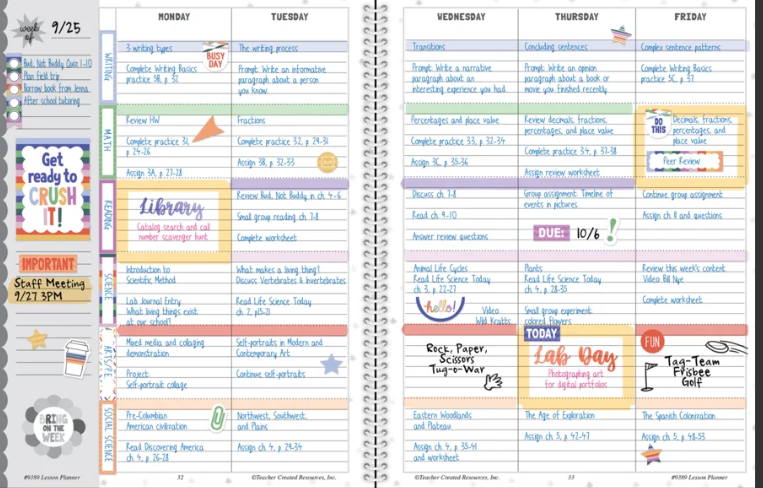 week of 9/25
Bud, Not Buddy Quiz 1-10
Plan field trip
Borrow book from Jenna
After school tutoring
Get
ready to
CRUSH
IT!
IMPORTANT
Staff Meeting
9/27 3PM
BRING
ON THE
WEEK
#9389 Lesson Planner
MONDAY
TUESDAY
WRITING
3 writing types
BUSY
DAY
Complete Writing Basics
practice 5B, p. 52
The writing process
Prompt: Write an informative
paragraph about a person
you know.
MATH
Review HW
Complete practice 31,
p. 24-26
Assign 3A, 27-28
Fractions
Complete practice 32, p. 29-31
Assign 3B, 32-33
READING
Library
Catalog search and call
number scavenger hunt
Review Bud, Not Buddy in ch. 4-6
Small group reading ch. 7-8
Complete worksheet
SCIENCE
Introduction to
Scientific Method
Lab Journal Entry:
What living things exist
at our school?
What makes a living thing?
Discuss Vertebrates & Invertebrates
Read Life Science Today
ch. 2, p15-21
ARTS/PE
Mixed media and collaging
demonstration
Project:
Self-portrait collage
Self-portraits in Modern and
Contemporary Art
Continue self-portraits
SOCIAL SCIENCE
Pre-Columbian
American civilization
Read Discovering America
ch. 4, p. 26-28
Northwest, Southwest,
and Plains
Assign ch. 4, p. 29-34
32
©Teacher Created Resources, Inc.
WEDNESDAY
THURSDAY
FRIDAY
Transitions
Prompt: Write a narrative
paragraph about an
interesting experience you had.
Concluding sentences
Prompt: Write an opinion
paragraph about a book or
movie you finished recently.
Complex sentence patterns
Complete Writing Basics
practice 5C, p. 57
Percentages and place value
Complete practice 33, p. 32-34
Assign 3C, 35-36
Review decimals, fractions,
percentages, and place value
Complete practice 34, p. 37-38
Assign review worksheet
DO
THIS
Decimals, fractions,
percentages, and
place value
Peer Review
Discuss ch. 7-8
Read ch. 9-10
Answer review questions
Group assignment: Timeline of
events in pictures
DUE: 10/6 !
Continue group assignment
Assign ch. 11 and questions
Animal Life Cycles
Read Life Science Today
ch. 3, p. 22-27
hello!
Video
Wild Kratts
Plants
Read Life Science Today
ch. 4, p. 28-35
Small group experiment:
colored flowers
Review this week's content
Video: Bill Nye
Complete worksheet
Rock, Paper,
Scissors
Tug-o-War
TODAY
Lab Day
Photographing art
for digital portfolios
FUN
Tag-Team
Frisbee
Golf
Eastern Woodlands
and Plateau
Assign ch. 4, p. 35-41
and worksheet
The Age of Exploration
Assign ch. 5, p. 42-47
The Spanish Colonization
Assign ch. 5, p. 48-53
©Teacher Created Resources, Inc.
33
#9389 Lesson Planner